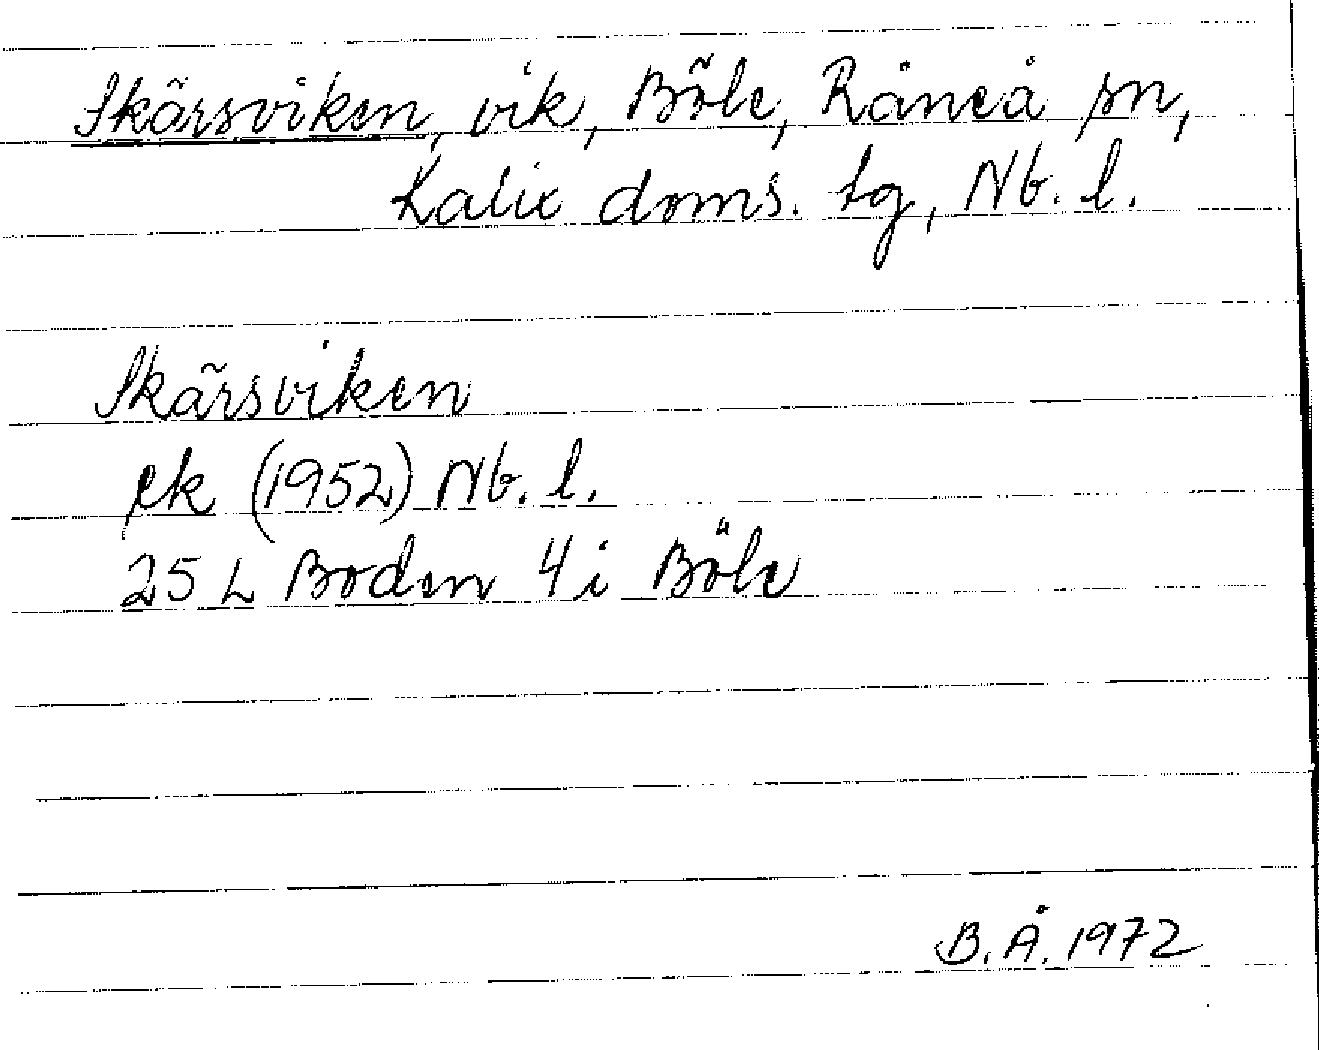 Skärsviken, vik, Böle, Råneå sn,
Kalix doms. tg, Nb. l.
Skärsviken
ek (1952) Nb. l.
25 L Boden 4 i Böle
B.Å. 1972